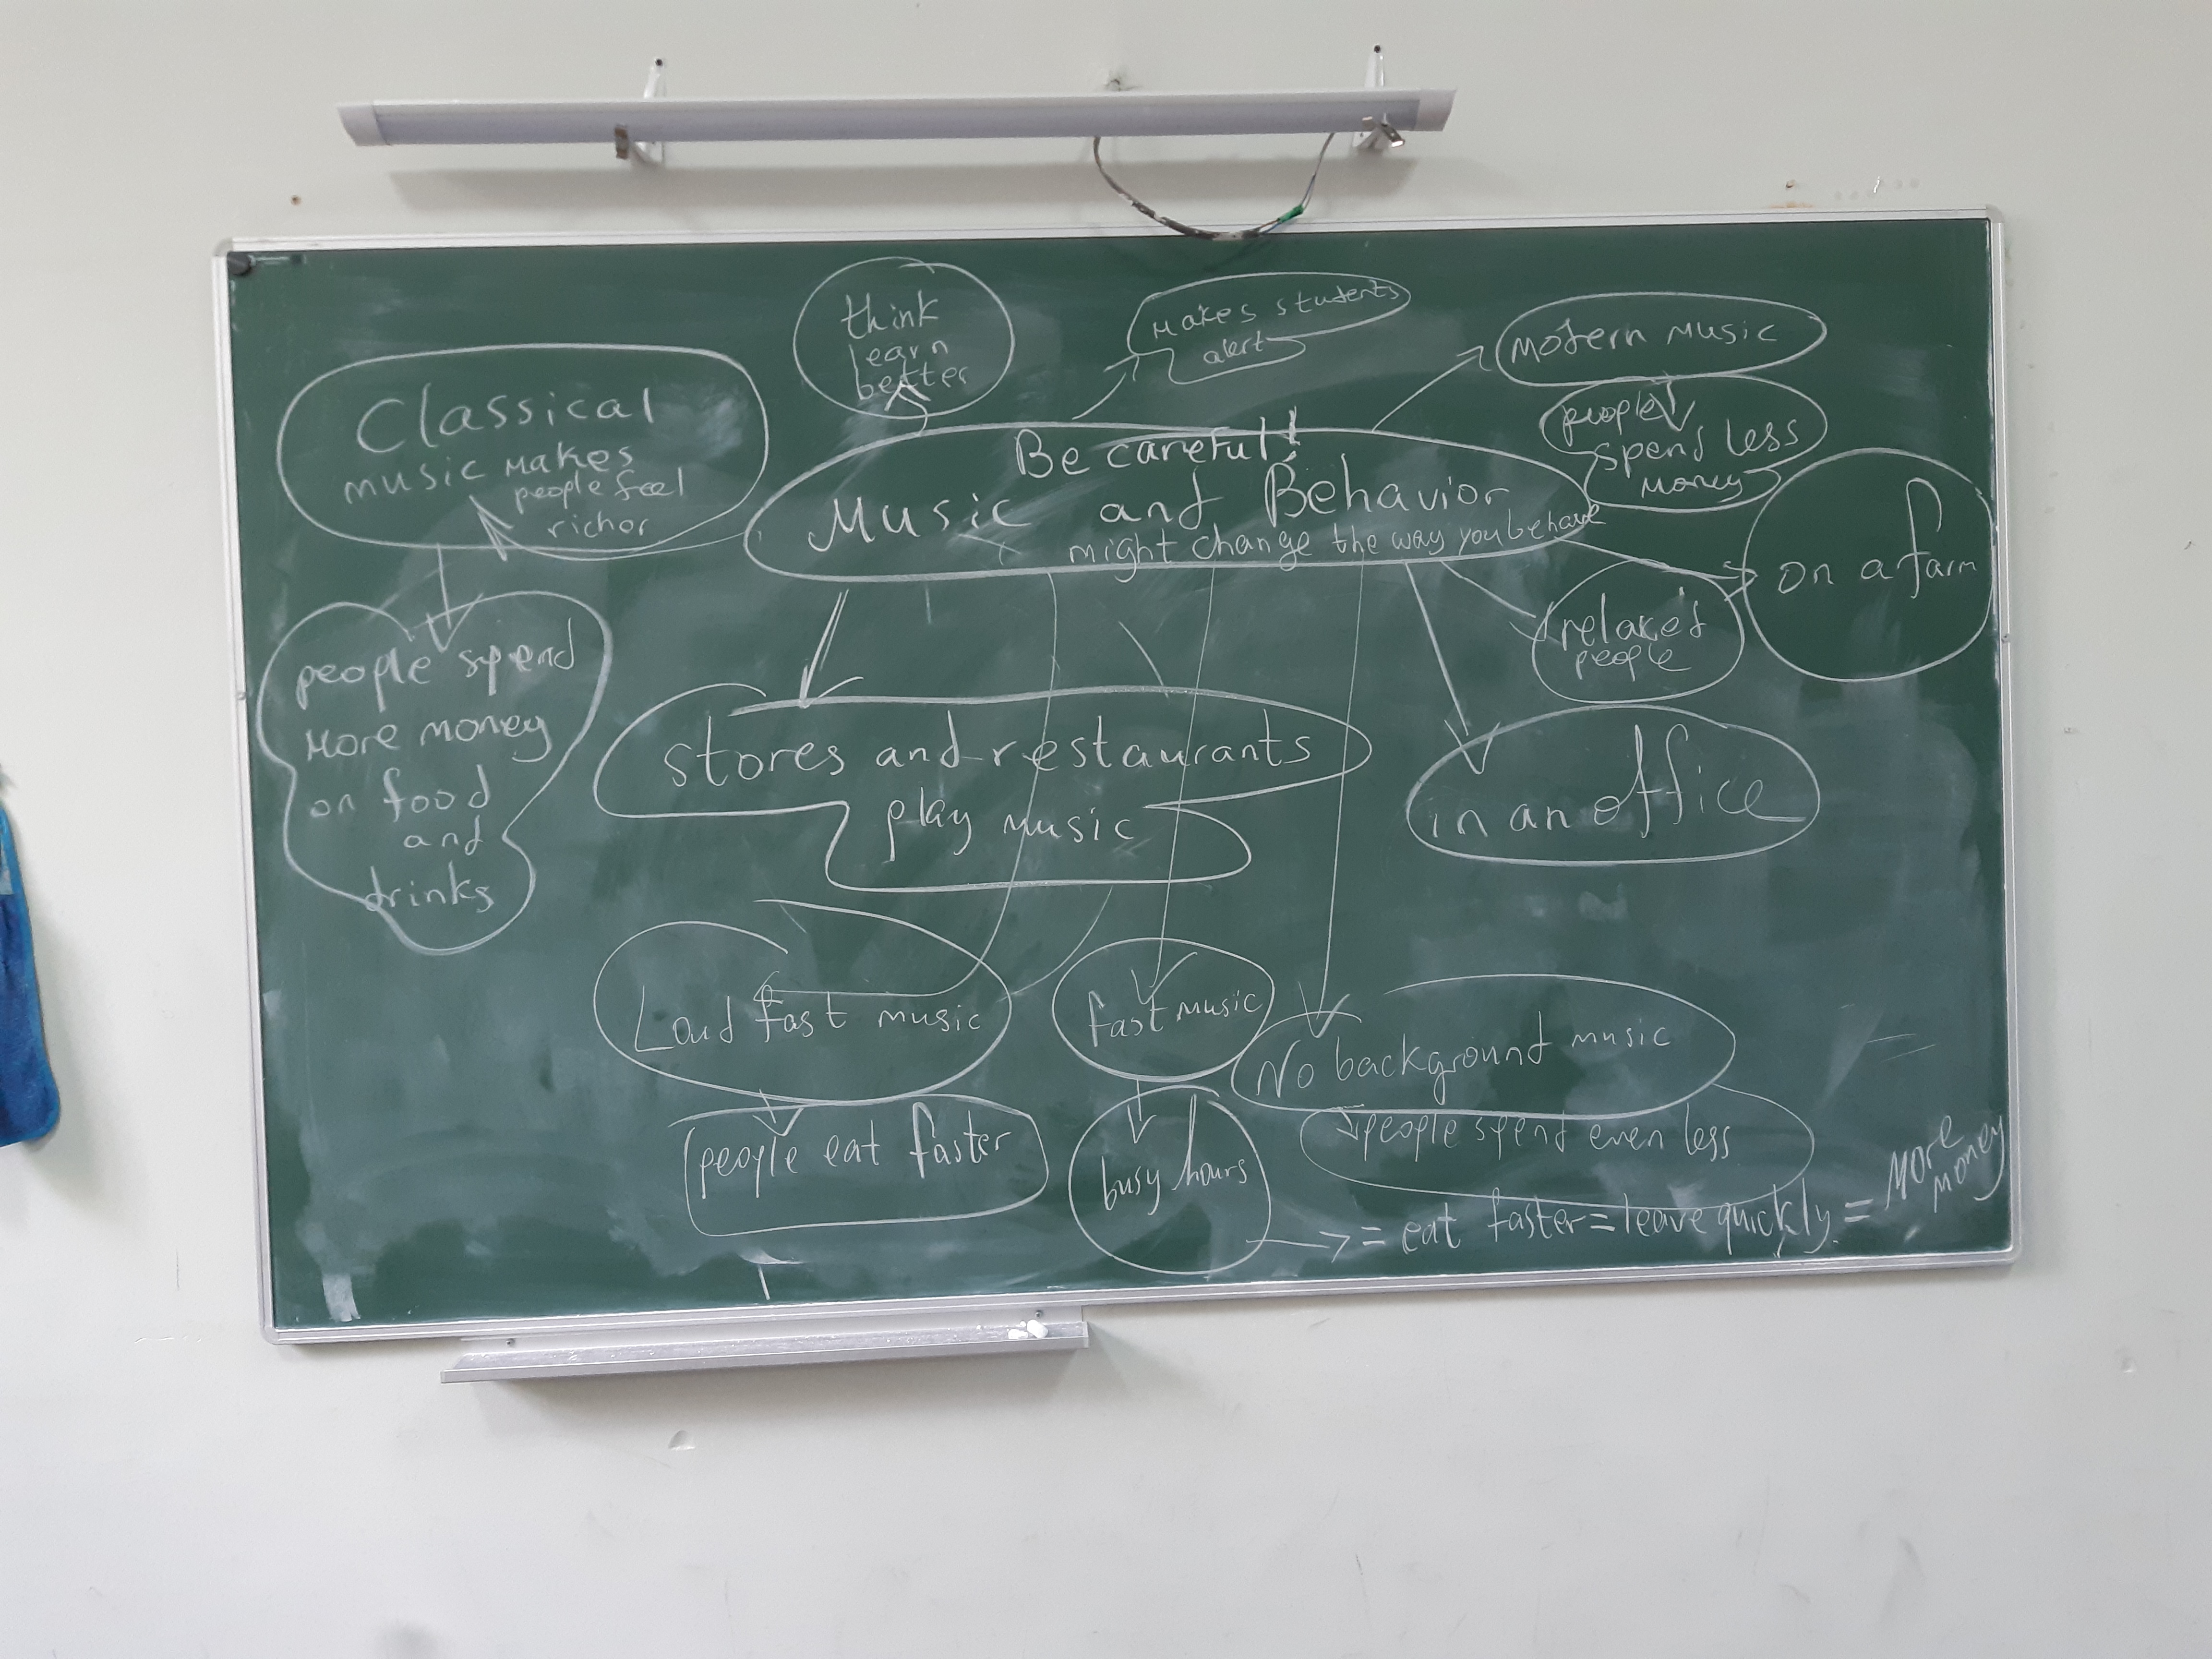 think
learn
better
makes students
alert
modern music
people
spend less
money
Classical
music makes
people feel
richor
Be careful!
Music and Behavior
might change the way you behave
on a farm
relaxed
people
people spend
more money
on food
and
drinks
stores and restaurants
play music
in an office
Loud fast music
fast music
No background music
people eat faster
busy hours
people spend even less
= eat faster = leave quickly. = more
money